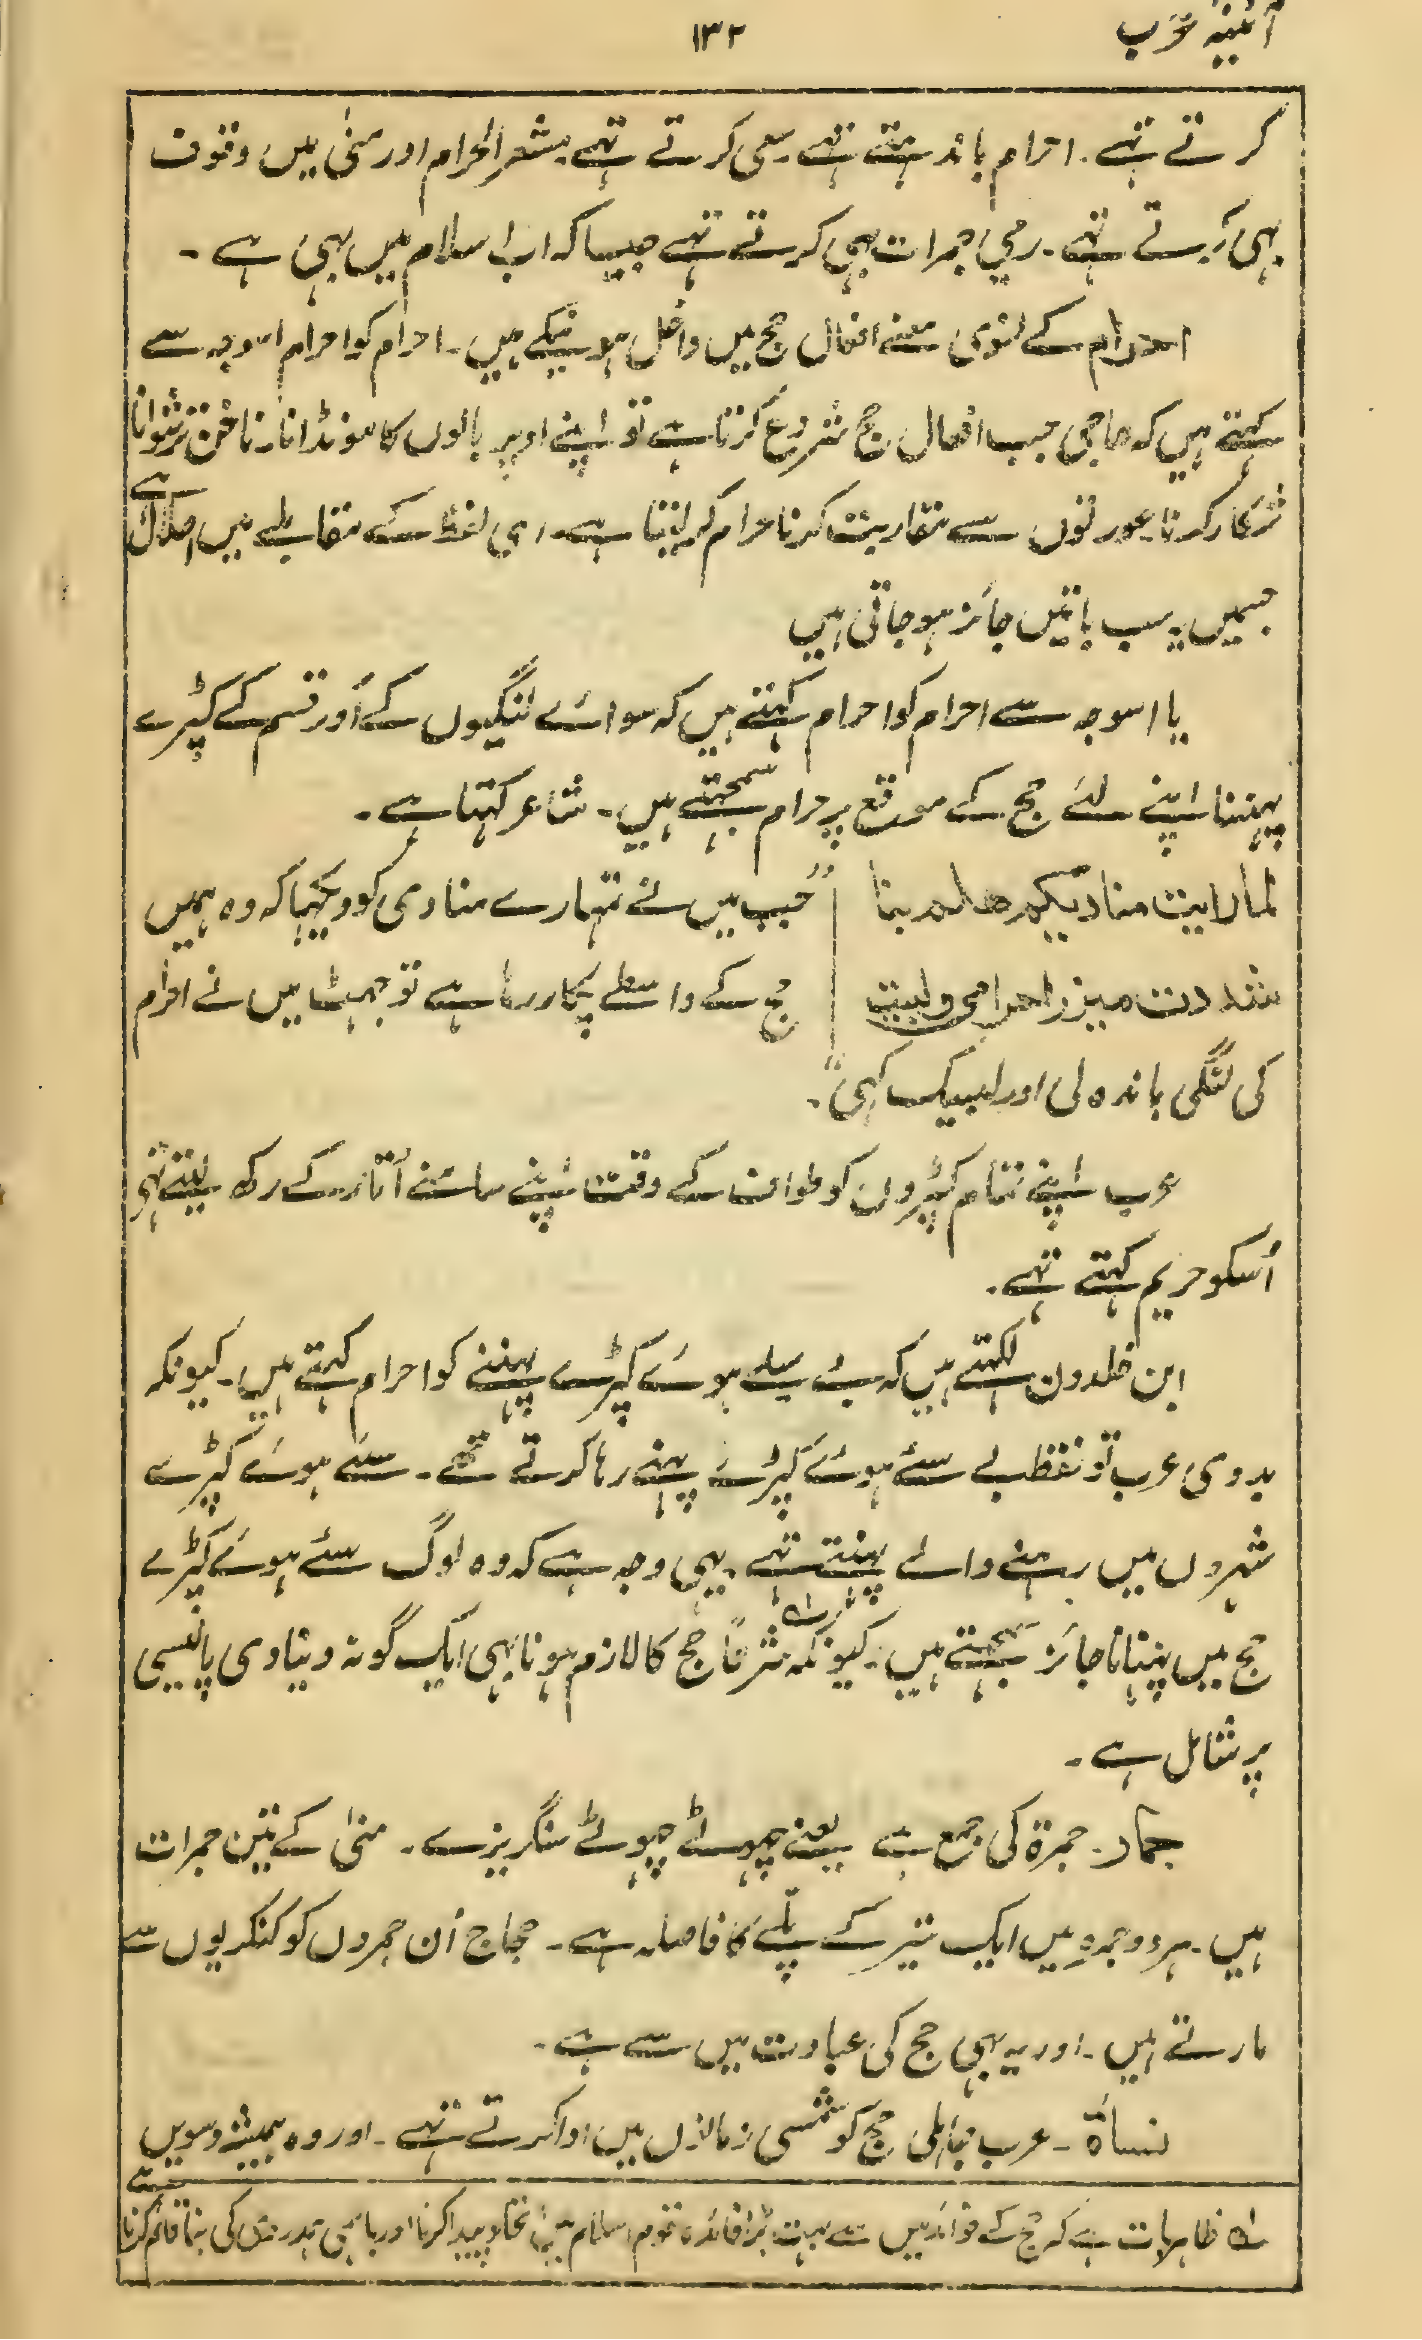 آئینۂ عرب
۱۳۲
کرتے تہے۔ احرام باندہتے تہے۔ سعی کرتے تہے۔ مشعر الحرام اور منیٰ میں وقوف
بہی کرتے تہے۔ رمی جمرات بہی کرتے تہے جیسا کہ اب اسلام میں بہی ہے۔
احرام کے لغوی معنے افعال حج میں داخل ہونیکے ہیں۔ احرام کو احرام اسوجہ سے
کہتے ہیں کہ حاجی جب افعال حج شروع کرتا ہے تو اپنے اوپر بالوں کا مونڈانا۔ ناخن ترشوانا
شکار کرنا عورتوں سے مقاربت کرنا حرام کر لیتا ہے۔ اسی لفظ کے مقابلے میں احلال ہے
جسمیں یہ سب باتیں جائز ہو جاتی ہیں
یا اسوجہ سے احرام کو احرام کہتے ہیں کہ سوائے لنگیوں کے اَور قسم کے کپڑے
پہننا اپنے لئے حج کے موقع پر حرام سمجہتے ہیں۔ شاعر کہتا ہے۔
لما رایت منادیکم ھلم بنا | "جب میں نے تمہارے منادی کو دیکہا کہ وہ ہمیں
شددت میزر احرامی ولبیت | حج کے واسطے پکار رہا ہے تو جہٹ میں نے احرام
کی لنگی باندہ لی اور لبیک کہی"۔
عرب اپنے تمام کپڑوں کو طواف کے وقت اپنے سامنے اُتار کے رکھ لیتے تہے
اُسکو حریم کہتے تہے۔
ابن خلدون لکہتے ہیں کہ بے سیلے ہوئے کپڑے پہننے کو احرام کہتے ہیں۔ کیونکہ
بدوی عرب تو فقط بے سئے ہوئے کپڑے پہنے رہا کرتے تھے۔ سئے ہوئے کپڑے
شہروں میں رہنے والے پہنتے تہے۔ یہی وجہ ہے کہ وہ لوگ سئے ہوئے کپڑے
حج میں پہننا ناجائز سمجہتے ہیں۔ کیونکہ ؎۱ شرعاً حج کا لازم ہونا بہی ایک گونہ دنیاوی پالیسی
پر شامل ہے۔
جمار۔ جمرۃ کی جمع ہے یعنے چہوٹے چہوٹے سنگریزے۔ منیٰ کے تین جمرات
ہیں۔ ہر دو جمرہ میں ایک تیر کے پلّے کا فاصلہ ہے۔ حجاج اُن جمروں کو کنکریوں سے
مارتے ہیں۔ اور یہ بہی حج کی عبادت میں سے ہے۔
نساۃ۔ عرب جاہلی حج کو شمسی زمانوں میں ادا کرتے تہے۔ اور وہ ہمیشہ دسویں
؎۱ ظاہر بات ہے کہ حج کے فوائد میں سے بہت بڑا فائدہ قوم اسلام میں اتحاد پیدا کرنا اور باہمی ہمدردی کی بنا قائم کرنا ہے